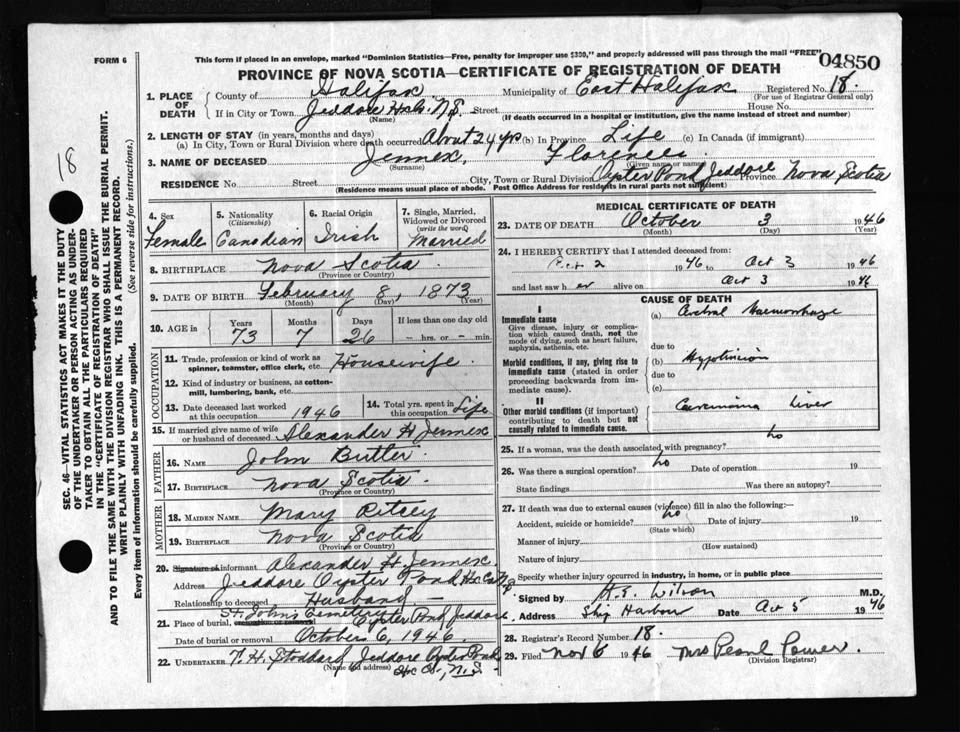 FORM 6
This form if placed in an envelope, marked "Dominion Statistics—Free, penalty for improper use $300," and properly addressed will pass through the mail "FREE"
04850
PROVINCE OF NOVA SCOTIA—CERTIFICATE OF REGISTRATION OF DEATH
1. PLACE OF DEATH County of Halifax Municipality of East Halifax Registered No. 18.
(For use of Registrar General only)
If in City or Town Jeddore Hbr. N.S. Street House No.
(Name) (If death occurred in a hospital or institution, give the name instead of street and number)
2. LENGTH OF STAY (in years, months and days)
(a) In City, Town or Rural Division where death occurred About 24 yrs (b) In Province Life (c) In Canada (if immigrant)
3. NAME OF DECEASED Jennex, Florence
(Surname) (Given name or names)
RESIDENCE No. Street City, Town or Rural Division Oyster Pond Jeddore Province Nova Scotia
(Residence means usual place of abode. Post Office Address for residents in rural parts not sufficient)
4. Sex Female
5. Nationality (Citizenship) Canadian
6. Racial Origin Irish
7. Single, Married, Widowed or Divorced (write the word) Married
8. BIRTHPLACE Nova Scotia
(Province or Country)
9. DATE OF BIRTH February 8, 1873
(Month) (Day) (Year)
10. AGE in Years Months Days If less than one day old
73 7 26 – hrs. or – min.
OCCUPATION
11. Trade, profession or kind of work as spinner, teamster, office clerk, etc. Housewife
12. Kind of industry or business, as cotton-mill, lumbering, bank, etc.
13. Date deceased last worked at this occupation 1946
14. Total yrs. spent in this occupation Life
15. If married give name of wife or husband of deceased Alexander H Jennex
FATHER
16. NAME John Butler
17. BIRTHPLACE Nova Scotia
(Province or Country)
MOTHER
18. MAIDEN NAME Mary Ritcey
19. BIRTHPLACE Nova Scotia
(Province or Country)
20. Signature of informant Alexander H. Jennex
Address Jeddore Oyster Pond Hx. Co.
Relationship to deceased Husband
21. Place of burial, cremation or removal St. John's Cemetery Oyster Pond Jeddore
Date of burial or removal October 6, 1946.
22. UNDERTAKER Stoddard Jeddore Oyster Pond
(Name and address) Hx Co., N.S.
MEDICAL CERTIFICATE OF DEATH
23. DATE OF DEATH October 3 1946
(Month) (Day) (Year)
24. I HEREBY CERTIFY that I attended deceased from:
Oct 2 1946 to Oct 3 1946
and last saw h er alive on Oct 3 1946
CAUSE OF DEATH
I
Immediate cause
Give disease, injury or complication which caused death, not the mode of dying, such as heart failure, asphyxia, asthenia, etc.
(a) Cerebral Haemorrhage
due to
Morbid conditions, if any, giving rise to immediate cause (stated in order proceeding backwards from immediate cause).
(b) Hypertension
due to
(c)
II
Other morbid conditions (if important) contributing to death but not causally related to immediate cause.
Carcinoma Liver
25. If a woman, was the death associated with pregnancy? no
26. Was there a surgical operation? no Date of operation 19
State findings Was there an autopsy?
27. If death was due to external causes (violence) fill in also the following:— no
Accident, suicide or homicide? Date of injury 19
(State which)
Manner of injury
(How sustained)
Nature of injury
Specify whether injury occurred in industry, in home, or in public place
Signed by Wilson M.D.
Address Ship Harbour Date Oct 5 1946
28. Registrar's Record Number 18.
29. Filed Nov 6 1946 Mrs Pearl Power.
(Division Registrar)
18
SEC. 46—VITAL STATISTICS ACT MAKES IT THE DUTY
OF THE UNDERTAKER OR PERSON ACTING AS UNDER-
TAKER TO OBTAIN ALL THE PARTICULARS REQUIRED
IN THE "CERTIFICATE OF REGISTRATION OF DEATH"
AND TO FILE THE SAME WITH THE DIVISION REGISTRAR WHO SHALL ISSUE THE BURIAL PERMIT.
WRITE PLAINLY WITH UNFADING INK. THIS IS A PERMANENT RECORD.
Every item of information should be carefully supplied. (See reverse side for instructions.)